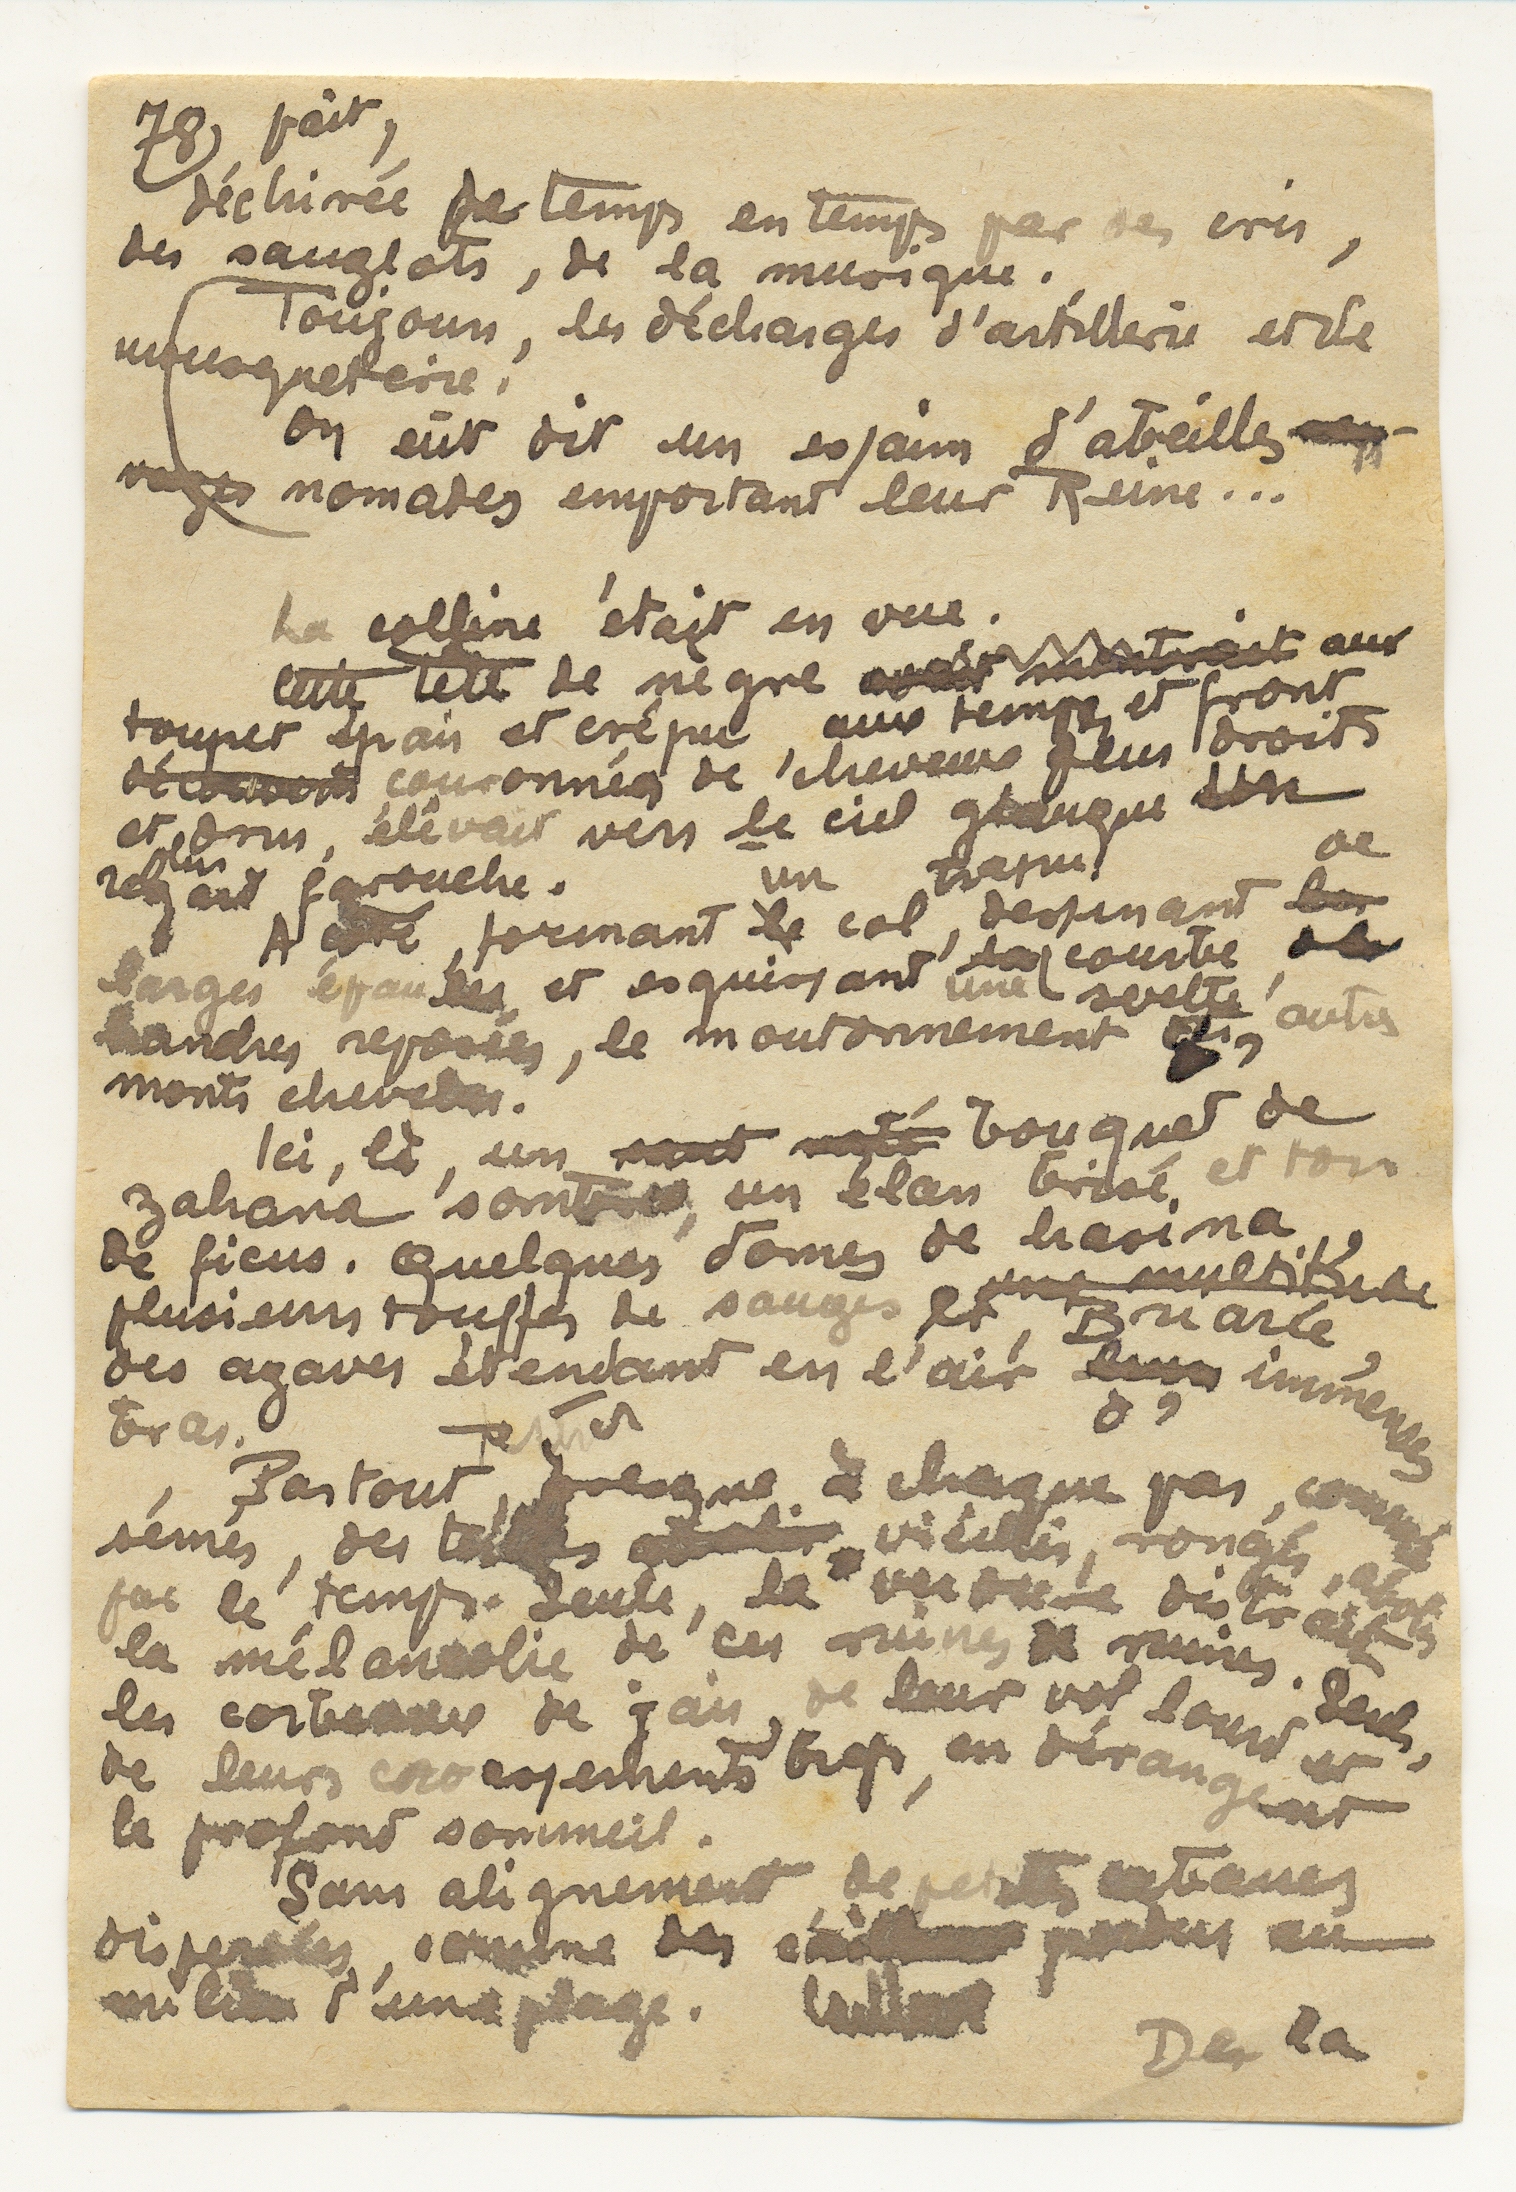 78) fait,
déchirée de temps en temps par des cris,
des sanglots, de la musique.
Toujours, les décharges d'artillerie et de
mousqueterie.
On eût dit un essaim d'abeilles
nomades emportant leur Reine...
La colline était en vue.
Cette tête de nègre avait montrait aux
toupet épais et crépu aux tempes et front
découverts couronnés de cheveux plus droits
et drus, élevait vers le ciel glauque un
plus
regard farouche.
un trapu de
A côté, formant le col, dessinant les
larges épaules et esquissant la courbe de
une svelte
hanches reposées, le moutonnement d'autres
monts chevelus.
Ici, là, un bouquet de
zahana sombre, un élan brisé et tors
de ficus. Quelques dômes de hasina,
plusieurs touffes de sauges et, une multitude
Briarée,
des agaves étendant en l'air leurs immenses
d'
bras.
Partout, presque à chaque pas, comme
semés, des vieillis, rongés, abolis
par le temps. Seule, la verdure distrait
la mélancolie de ces ruines de ruines. Seuls,
les corbeaux de jais, de leur vol lourd et
de leurs croassements brefs, en dérangent
le profond sommeil.
Sans alignement, de petites
dispersées, comme des cailloux perdus au
milieu d'une plage.
De la